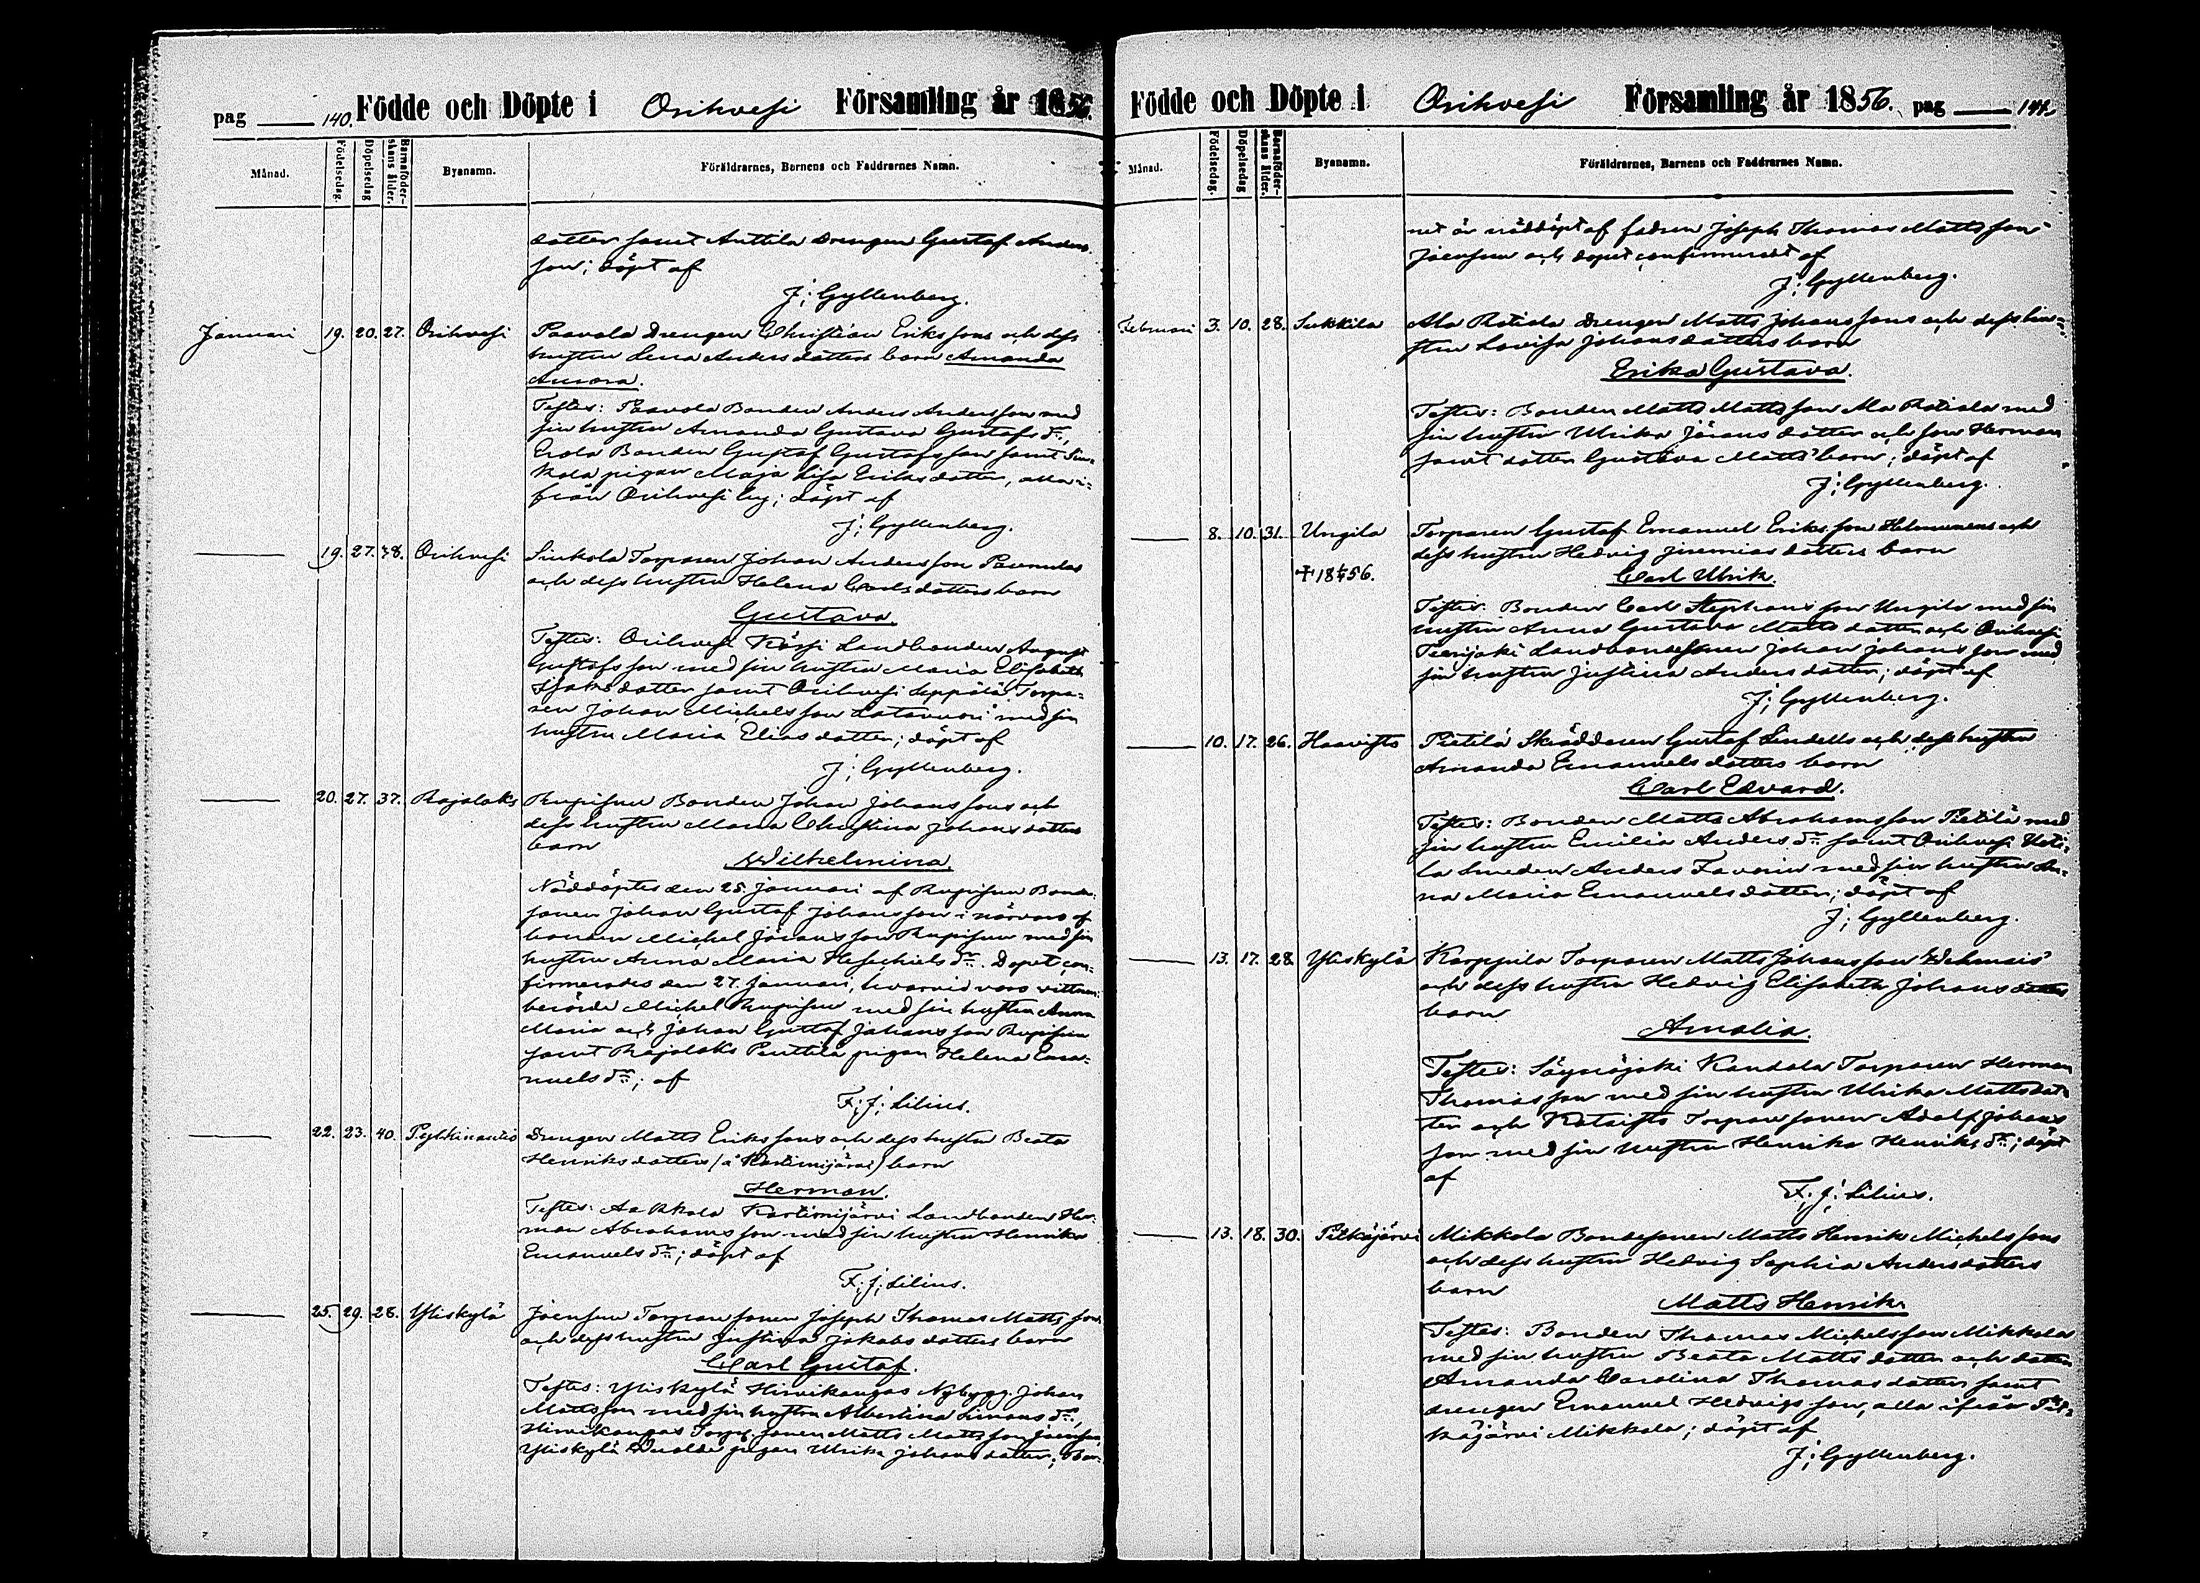 pag 140. Födde och Döpte i Orihvesi Församling år 1856.
Månad. Födelsedag. Döpelsedag Barnaföder-skans ålder. Byanamn. Föräldrarnes, Barnens och Faddrarnes Namn.
dotter samt Anttila Drengen Gustaf Anders-
son; döpt af
J; Gyllenberg.
Januari 19. 20. 27. Orihvesi Paavola Drengen Christian Erikssons och dess
hustru Lena Andersdotters barn Amanda
Aurora.
Testes: Paavola Bonden Anders Andersson med
sin hustru Amanda Gustava Gustafs dr,
Erola Bonden Gustaf Gustafsson samt Siu-
kola pigan Maja Lisa Eriksdotter, alla i-
från Orihvesi by; döpt af
J; Gyllenberg.
19. 27. 48. Orihvesi Siukola Torparen Johan Andersson
och dess hustru Helena Carlsdotters barn
Gustava.
Testes: Orihvesi Landbonden August
Gustafsson med sin hustru Maria Elisabeth
Isaksdotter samt Orihvesi Seppälä Torpa-
ren Johan Michelsson Latovuori med sin
hustru Maria Eliasdotter; döpt af
J; Gyllenberg.
20. 27. 37. Rajalaks Rupisun Bonden Johan Johanssons och
dess hustru Maria Christina Johansdotters
barn
Wilhelmina.
Nöddöptes den 25. Januari af Rupisun Bonde-
sonen Johan Gustaf Johansson i närvaro af
bonden Michel Jöransson Rupisun med sin
hustru Anna Maria Hesechiels dr. Dopet con-
firmerades den 27. Januari, hvarvid voro vittnen
berörde Michel Rupisun med sin hustru Anna
Maria och Johan Gustaf Johansson Rupisun
samt Rajalaks Penttilä pigan Helena Ema-
nuels dr; af
F; J; Lilius.
22. 23. 40. Pyhkinantis Drengen Matts Erikssons och dess hustru Beata
Henriksdotters (à Kartimijärvi) barn
Herman.
Testes: Aakkola Kartimijärvi Landbonden Her-
man Abrahamsson med sin hustru Henrika
Emanuels dr; döpt af
F; J; Lilius.
25. 29. 28. Yliskylä Joensun Torparesonen Joseph Thomas Mattssons
och dess hustru Justina Jakobsdotters barn
Carl Gustaf.
Testes: Yliskylä Hirvikangas Nybygg. Johan
Mattsson med sin hustru Albertina Simons dr,
Hirvikangas Torp. sonen Matts Mattsson Joensun,
Yliskylä pigan Ulrika Johansdotter; bar-
Födde och Döpte i Orihvesi Församling år 1856. pag 141.
Månad. Födelsedag. Döpelsedag Barnaföder-skans ålder. Byanamn. Föräldrarnes, Barnens och Faddrarnes Namn.
net är nöddöpt af fadren Joseph Thomas Mattsson
Joensun och dopet confirmeradt af
J; Gyllenberg.
Februari 3. 10. 28. Sukkila Ala Rotiala Drengen Matts Johanssons och dess hu-
stru Lovisa Johansdotters barn
Erika Gustava.
Testes: Bonden Matts Mattsson Ala Rotiala med
sin hustru Ulrika Jöransdotter och son Herman
samt dotter Gustava Matts barn; döpt af
J; Gyllenberg.
8. 10. 31. Ungila Torparen Gustaf Emanuel Eriksson och
dess hustru Hedvig Jeremiasdotters barn
Carl Ulrik.
Testes: Bonden Carl Stephansson Ungila med sin
hustru Anna Gustava Mattsdotter och Orihvesi
Landbondesonen Johan Johansson med
sin hustru Justina Andersdotter; döpt af
J; Gyllenberg.
10. 17. 26. Haavisto Pietilä Skräddaren Gustaf Lindells och dess hustru
Amanda Emanuelsdotters barn
Carl Edvard.
Testes: Bonden Matts Abrahamsson Pietilä med
sin hustru Emilia Anders dr samt Orihvesi Uoti-
la Smeden Anders Favorin med sin hustru An-
na Maria Emanuelsdotter; döpt af
J; Gyllenberg.
13. 17. 28. Yliskylä Karppila Torparen Matts Johansson
och dess hustru Hedvig Elisabeth Johansdotters
barn
Amalia.
Testes: Säynäjoki Kandola Torparen Herman
Thomasson med sin hustru Ulrika Mattsdot-
ter och Torparesonen Adolf Johans-
son med sin hustru Henrika Henriks dr; döpt
af
F; J; Lilius.
13. 18. 30. Pitkäjärvi Mikkola Bondesonen Matts Henrik Michelssons
och dess hustru Hedvig Sophia Andersdotters
barn
Matts Henrik.
Testes: Bonden Thomas Michelsson Mikkola
med sin hustru Beata Mattsdotter och dotter
Amanda Carolina Thomasdotter samt
drengen Emanuel Hedvigsson, alla ifrån Pit-
käjärvi Mikkola; döpt af
J; Gyllenberg.